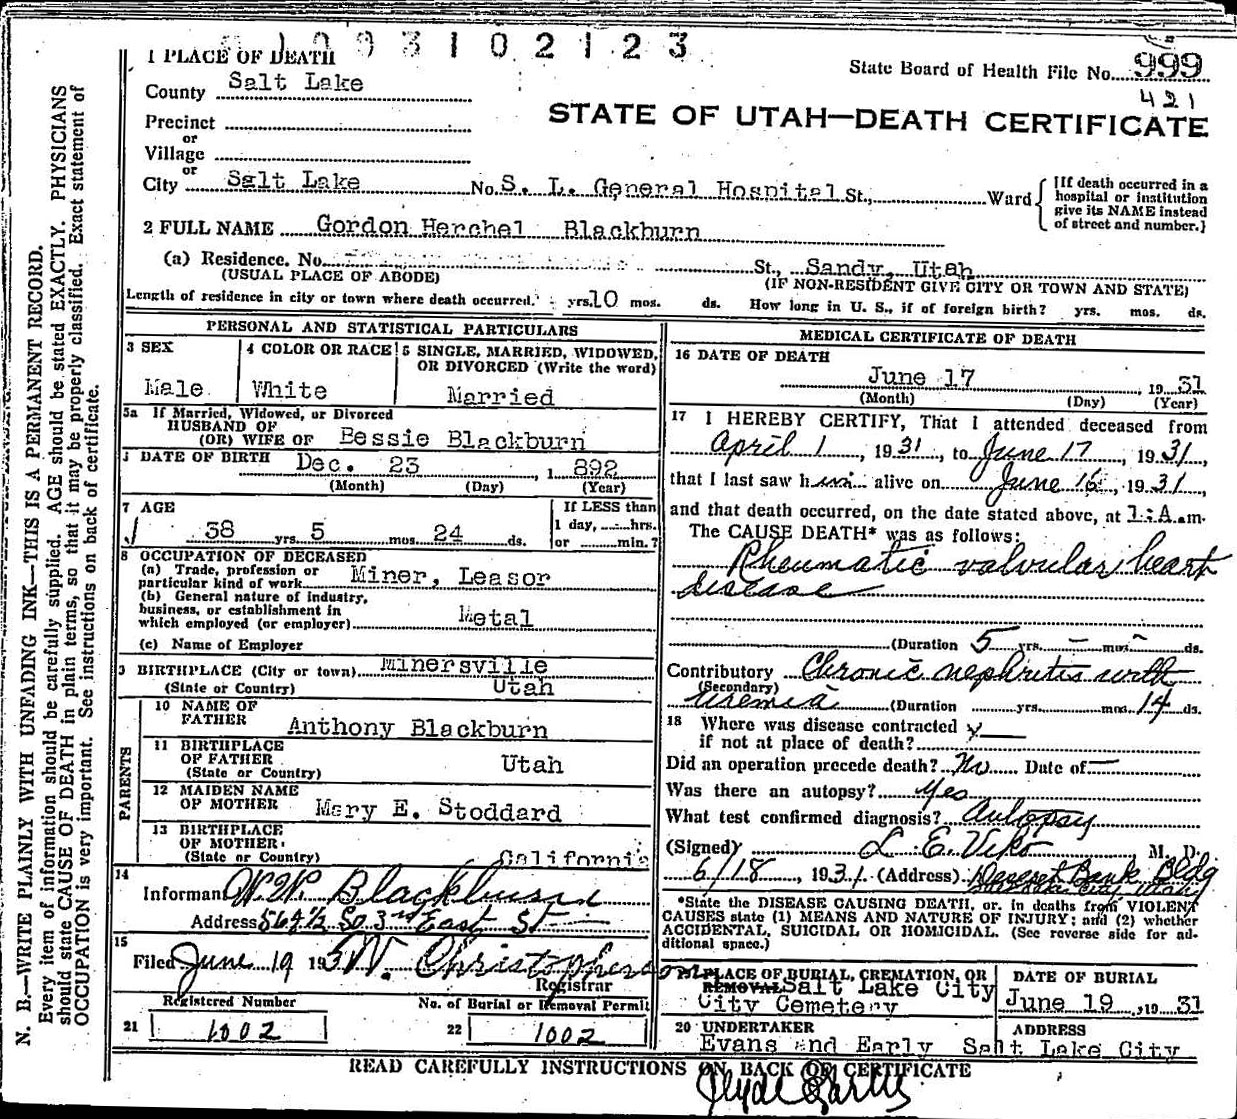 1093102123
1 PLACE OF DEATH
State Board of Health File No. 999
County Salt Lake
421
STATE OF UTAH—DEATH CERTIFICATE
Precinct
or
Village
or
City Salt Lake No. S. L. General Hospital St., Ward {If death occurred in a hospital or institution give its NAME instead of street and number.}
2 FULL NAME Gordon Herchel Blackburn
(a) Residence. No. St., Sandy, Utah
(USUAL PLACE OF ABODE) (IF NON-RESIDENT GIVE CITY OR TOWN AND STATE)
Length of residence in city or town where death occurred. yrs. 10 mos. ds. How long in U. S., if of foreign birth? yrs. mos. ds.
PERSONAL AND STATISTICAL PARTICULARS
3 SEX 4 COLOR OR RACE 5 SINGLE, MARRIED, WIDOWED,
OR DIVORCED (Write the word)
Male White Married
5a If Married, Widowed, or Divorced
HUSBAND OF
(OR) WIFE OF Bessie Blackburn
DATE OF BIRTH Dec. 23 1892
(Month) (Day) (Year)
7 AGE If LESS than
38 yrs. 5 mos. 24 ds. 1 day, hrs.
or min.?
8 OCCUPATION OF DECEASED
(a) Trade, profession or
particular kind of work Miner, Leasor
(b) General nature of industry,
business, or establishment in
which employed (or employer) Metal
(c) Name of Employer
9 BIRTHPLACE (City or town) Minersville
(State or Country) Utah
PARENTS
10 NAME OF
FATHER Anthony Blackburn
11 BIRTHPLACE
OF FATHER Utah
(State or Country)
12 MAIDEN NAME
OF MOTHER Mary E. Stoddard
13 BIRTHPLACE
OF MOTHER
(State or Country) California
14
Informant W.W. Blackburn
Address 564½ So. 3rd East St
15
Filed June 19 1931 W. Christopherson
Registrar
Registered Number No. of Burial or Removal Permit
21 1002 22 1002
MEDICAL CERTIFICATE OF DEATH
16 DATE OF DEATH
June 17 1931
(Month) (Day) (Year)
17 I HEREBY CERTIFY, That I attended deceased from
April 1, 1931, to June 17, 1931,
that I last saw him alive on June 16, 1931,
and that death occurred, on the date stated above, at 1:A.m.
The CAUSE DEATH* was as follows:
Rheumatic valvular heart
disease
(Duration 5 yrs. — mos. — ds.
Contributory Chronic nephritis with
(Secondary)
uremia (Duration yrs. mos. 14 ds.
18 Where was disease contracted
if not at place of death?
Did an operation precede death? No Date of —
Was there an autopsy? Yes
What test confirmed diagnosis? Autopsy
(Signed) L. E. Viko M. D.
6/18, 1931 (Address) Deseret Bank Bldg
*State the DISEASE CAUSING DEATH, or, in deaths from VIOLENT
CAUSES state (1) MEANS AND NATURE OF INJURY; and (2) whether
ACCIDENTAL, SUICIDAL OR HOMICIDAL. (See reverse side for ad-
ditional space.)
PLACE OF BURIAL, CREMATION, OR DATE OF BURIAL
REMOVAL Salt Lake City
City Cemetery June 19, 1931
20 UNDERTAKER ADDRESS
Evans and Early Salt Lake City
READ CAREFULLY INSTRUCTIONS ON BACK OF CERTIFICATE
N. B.—WRITE PLAINLY WITH UNFADING INK—THIS IS A PERMANENT RECORD.
Every item of information should be carefully supplied. AGE should be stated EXACTLY. PHYSICIANS
should state CAUSE OF DEATH in plain terms, so that it may be properly classified. Exact statement of
OCCUPATION is very important. See instructions on back of certificate.